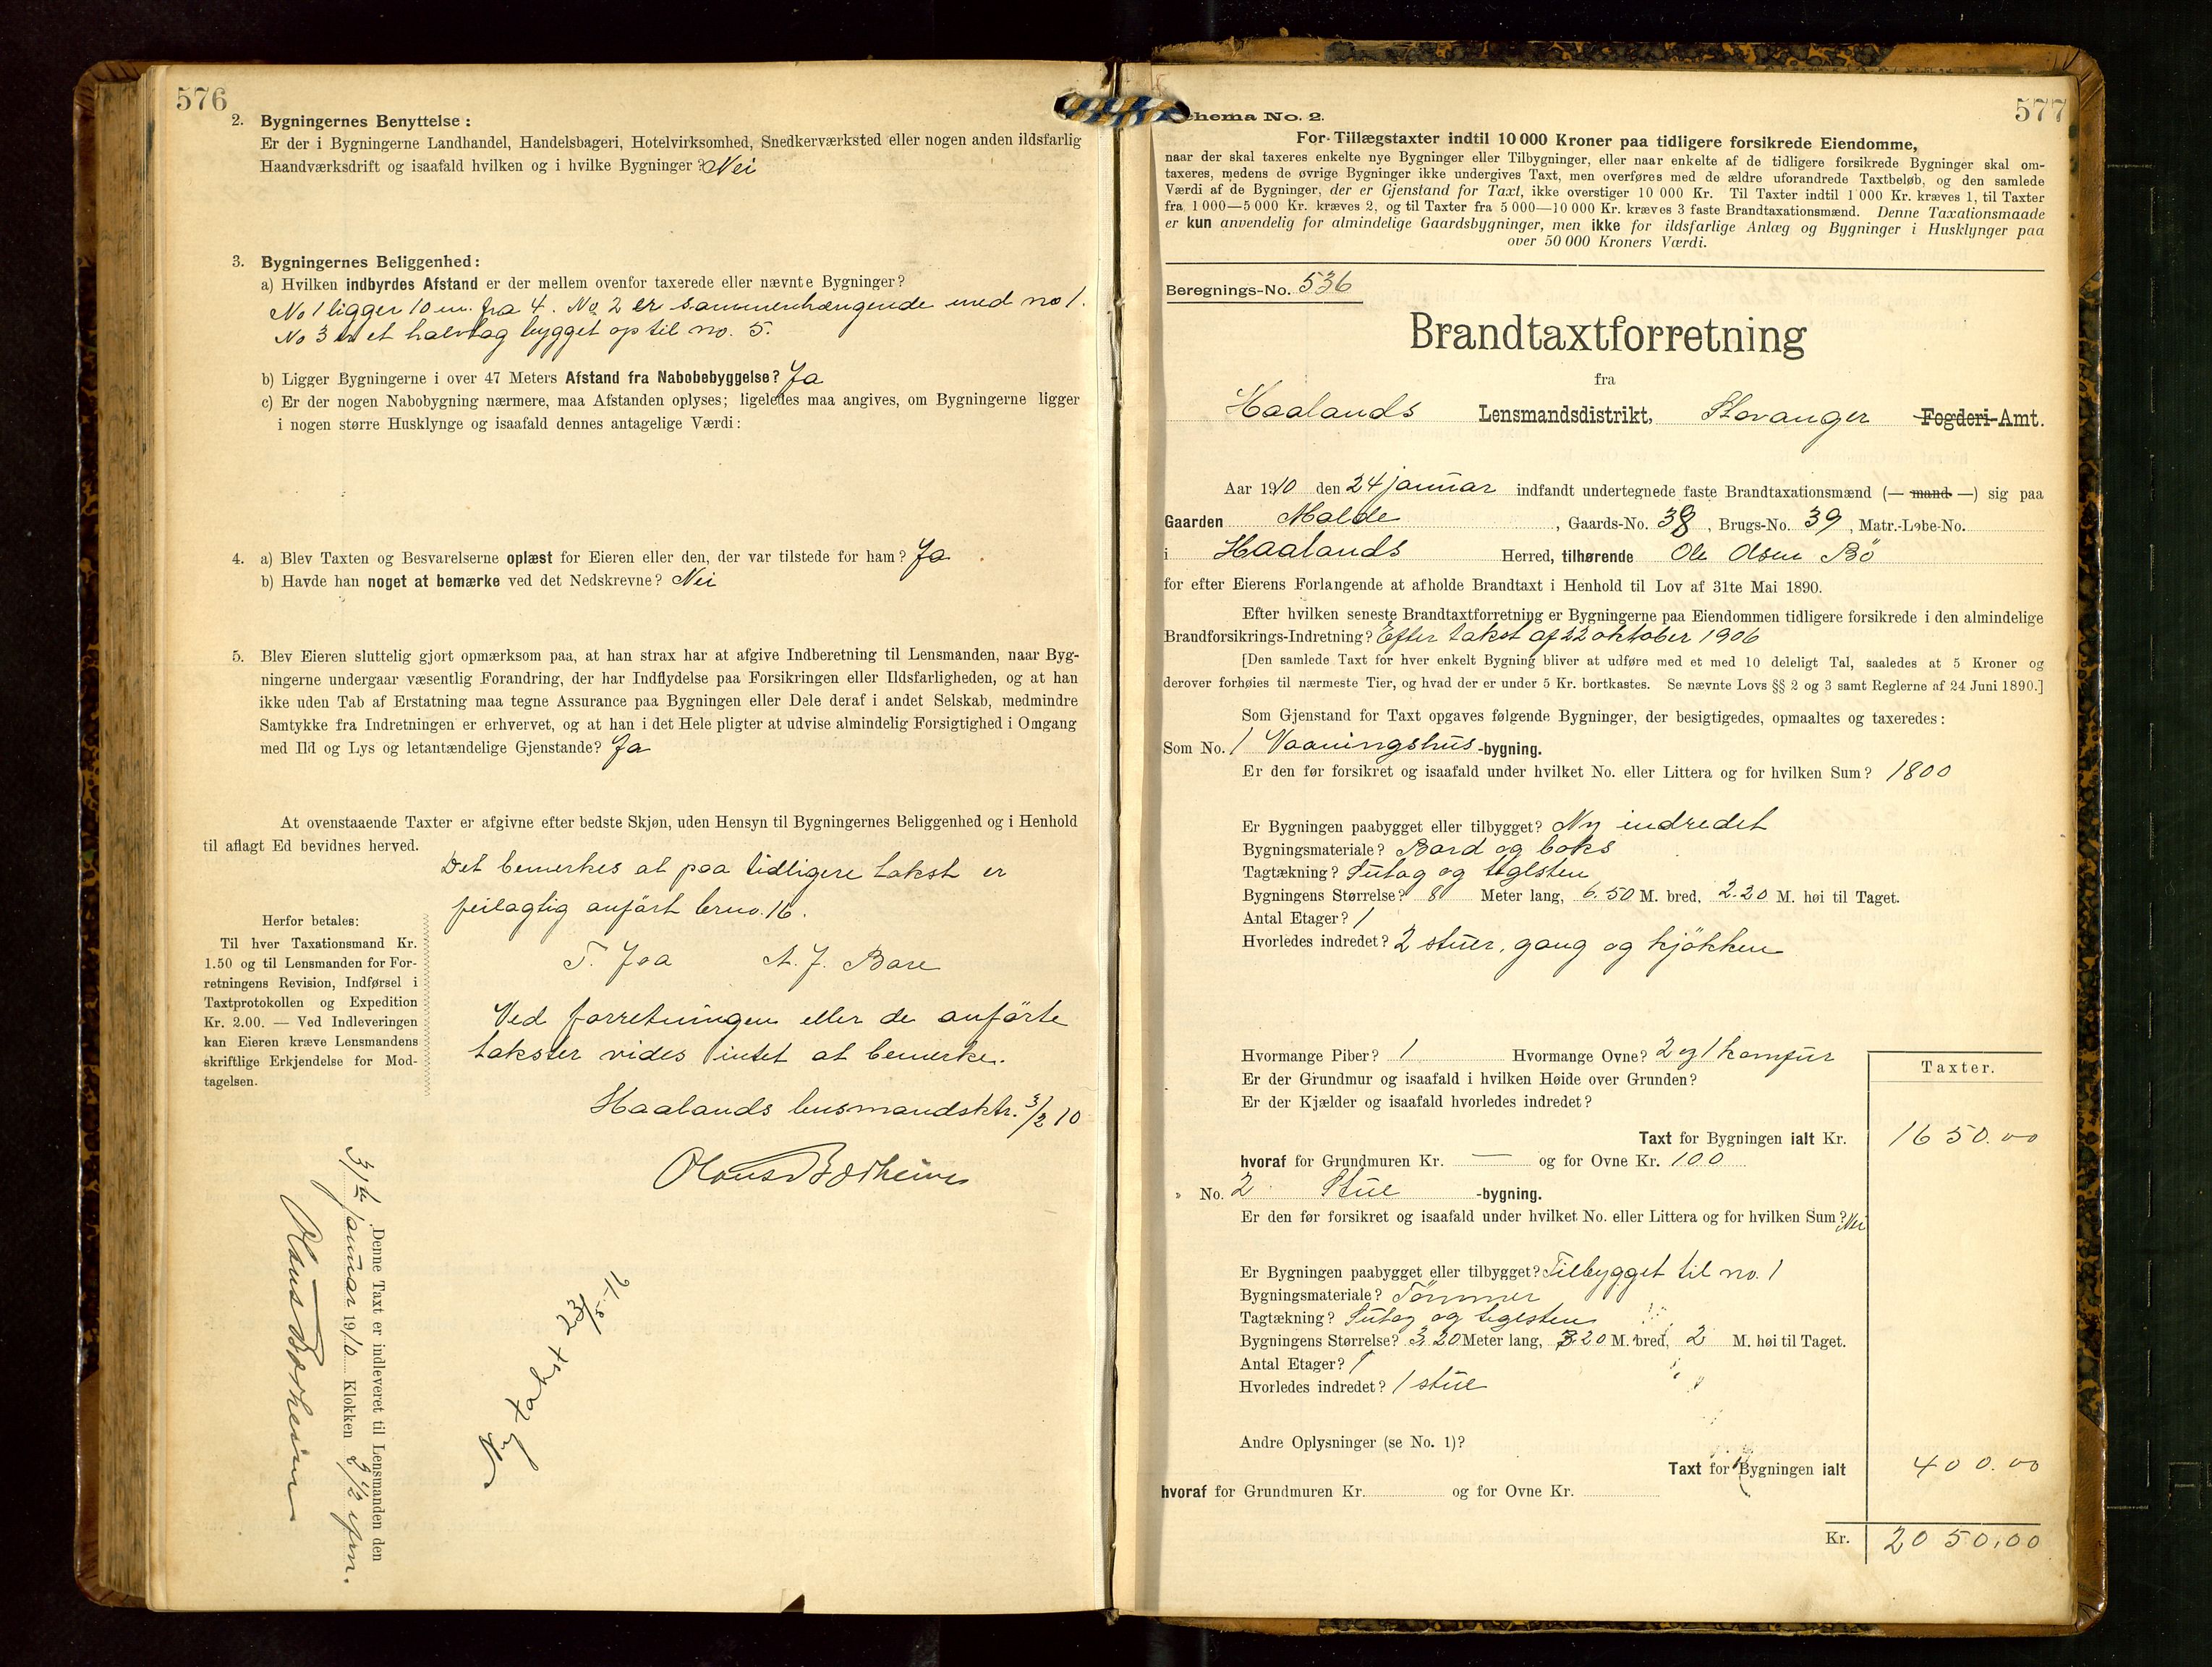 576
2. Bygningernes Benyttelse:
Er der i Bygningerne Landhandel, Handelsbageri, Hotelvirksomhed, Snedkerværksted eller nogen anden ildsfarlig
Haandværksdrift og isaafald hvilken og i hvilke Bygninger? Nei
3. Bygningernes Beliggenhed:
a) Hvilken indbyrdes Afstand er der mellem ovenfor taxerede eller nævnte Bygninger?
No 1 ligger 10 m. fra 4. No 2 er sammenhængende med no 1.
No 3 er et halvtag bygget op til no. 5.
b) Ligger Bygningerne i over 47 Meters Afstand fra Nabobebyggelse? Ja
c) Er der nogen Nabobygning nærmere, maa Afstanden oplyses; ligeledes maa angives, om Bygningerne ligger
i nogen større Husklynge og isaafald dennes antagelige Værdi:
4. a) Blev Taxten og Besvarelserne oplæst for Eieren eller den, der var tilstede for ham? Ja
b) Havde han noget at bemærke ved det Nedskrevne? Nei
5. Blev Eieren sluttelig gjort opmærksom paa, at han strax har at afgive Indberetning til Lensmanden, naar Byg-
ningerne undergaar væsentlig Forandring, der har Indflydelse paa Forsikringen eller Ildsfarligheden, og at han
ikke uden Tab af Erstatning maa tegne Assurance paa Bygningen eller Dele deraf i andet Selskab, medmindre
Samtykke fra Indretningen er erhvervet, og at han i det Hele pligter at udvise almindelig Forsigtighed i Omgang
med Ild og Lys og letantændelige Gjenstande? Ja
At ovenstaaende Taxter er afgivne efter bedste Skjøn, uden Hensyn til Bygningernes Beliggenhed og i Henhold
til aflagt Ed bevidnes herved.
Det bemerkes at paa tidligere takst er
feilagtig anført brno. 16.
T. Joa A. J. Bare
Ved forretningen eller de anførte
takster vides intet at bemerke.
Haalands lensmandsktr. 3/2 10
Olaus Borheim
Herfor betales:
Til hver Taxationsmand Kr.
1.50 og til Lensmanden for For-
retningens Revision, Indførsel i
Taxtprotokollen og Expedition
Kr. 2.00. — Ved Indleveringen
kan Eieren kræve Lensmandens
skriftlige Erkjendelse for Mod-
tagelsen.
Denne Taxt er indleveret til Lensmanden den
31te januar 1910 Klokken 3 1/2 efm.
Olaus Borheim
Ny takst 23/5-16
577
Schema No. 2.
For Tillægstaxter indtil 10 000 Kroner paa tidligere forsikrede Eiendomme,
naar der skal taxeres enkelte nye Bygninger eller Tilbygninger, eller naar enkelte af de tidligere forsikrede Bygninger skal om-
taxeres, medens de øvrige Bygninger ikke undergives Taxt, men overføres med de ældre uforandrede Taxtbeløb, og den samlede
Værdi af de Bygninger, der er Gjenstand for Taxt, ikke overstiger 10 000 Kr. Til Taxter indtil 1 000 Kr. kræves 1, til Taxter
fra 1 000—5 000 Kr. kræves 2, og til Taxter fra 5 000—10 000 Kr. kræves 3 faste Brandtaxationsmænd. Denne Taxationsmaade
er kun anvendelig for almindelige Gaardsbygninger, men ikke for ildsfarlige Anlæg og Bygninger i Husklynger paa
over 50 000 Kroners Værdi.
Beregnings-No. 536
Brandtaxtforretning
fra
Haalands Lensmandsdistrikt, Stavanger Fogderi-Amt.
Aar 1910 den 24 januar indfandt undertegnede faste Brandtaxationsmænd (— mand —) sig paa
Gaarden Malde, Gaards-No. 38, Brugs-No. 39, Matr.-Løbe-No.
i Haalands Herred, tilhørende Ole Olsen Bö
for efter Eierens Forlangende at afholde Brandtaxt i Henhold til Lov af 31te Mai 1890.
Efter hvilken seneste Brandtaxtforretning er Bygningerne paa Eiendommen tidligere forsikrede i den almindelige
Brandforsikrings-Indretning? Efter takst af 22 oktober 1906
[Den samlede Taxt for hver enkelt Bygning bliver at udføre med et med 10 deleligt Tal, saaledes at 5 Kroner og
derover forhøies til nærmeste Tier, og hvad der er under 5 Kr. bortkastes. Se nævnte Lovs §§ 2 og 3 samt Reglerne af 24 Juni 1890.]
Som Gjenstand for Taxt opgaves følgende Bygninger, der besigtigedes, opmaaltes og taxeredes:
Som No. 1 Vaaningshus-bygning.
Er den før forsikret og isaafald under hvilket No. eller Littera og for hvilken Sum? 1800
Er Bygningen paabygget eller tilbygget? Ny indredet
Bygningsmateriale? Bord og boks
Tagtækning? Sutag og teglsten
Bygningens Størrelse? 8 Meter lang, 6.50 M. bred, 2.20 M. høi til Taget.
Antal Etager? 1
Hvorledes indredet? 2 stuer, gang og kjökken
Hvormange Piber? 1 Hvormange Ovne? 2 og 1 komfur
Er der Grundmur og isaafald i hvilken Høide over Grunden?
Er der Kjælder og isaafald hvorledes indredet?
Taxter.
Taxt for Bygningen ialt Kr. 1650.00
hvoraf for Grundmuren Kr. — og for Ovne Kr. 100
» No. 2 Stue -bygning.
Er den før forsikret og isaafald under hvilket No. eller Littera og for hvilken Sum? Nei
Er Bygningen paabygget eller tilbygget? Tilbygget til no. 1
Bygningsmateriale? Tömmer
Tagtækning? Sutag og teglsten
Bygningens Størrelse? 3.20 Meter lang, 3.20 M. bred, 2 M. høi til Taget.
Antal Etager? 1
Hvorledes indredet? 1 stue
Andre Oplysninger (se No. 1)?
Taxt for Bygningen ialt 400.00
hvoraf for Grundmuren Kr. og for Ovne Kr.
Kr. 2050.00